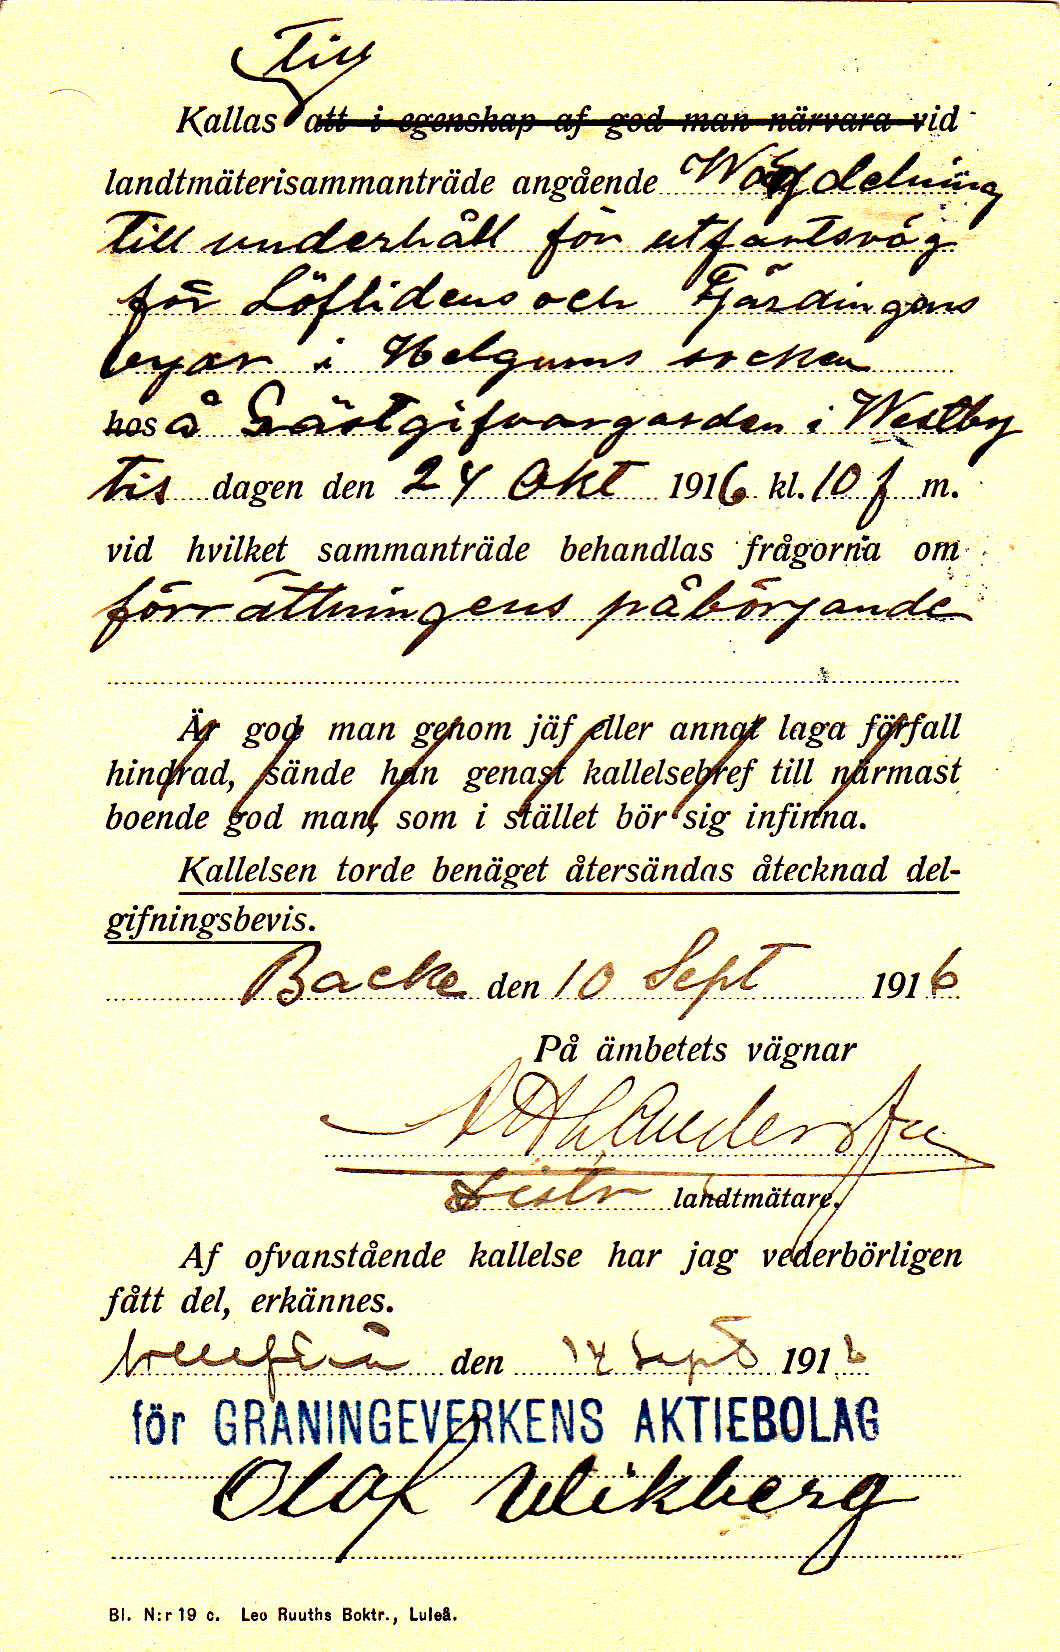 Till
Kallas att i egenskap af god man närvara vid
landtmäterisammanträde angående Vägdelning
till underhåll för utfartsväg
för Löflidens och Fjärdingens
byar i Helgums socken
hos å Gästgifvaregården i Westby
tis dagen den 24 Okt 1916 kl. 10 f m.
vid hvilket sammanträde behandlas frågorna om
förrättningens påbörjande
Är god man genom jäf eller annat laga förfall
hindrad, sände han genast kallelsebref till närmast
boende god man, som i stället bör sig infinna.
Kallelsen torde benäget återsändas åtecknad del-
gifningsbevis.
Backe den 10 Sept 1916
På ämbetets vägnar
Distr landtmätare.
Af ofvanstående kallelse har jag vederbörligen
fått del, erkännes.
den 14 Sept 1916
för GRANINGEVERKENS AKTIEBOLAG
Olof Wikberg
Bl. N:r 19 c. Leo Ruuths Boktr., Luleå.